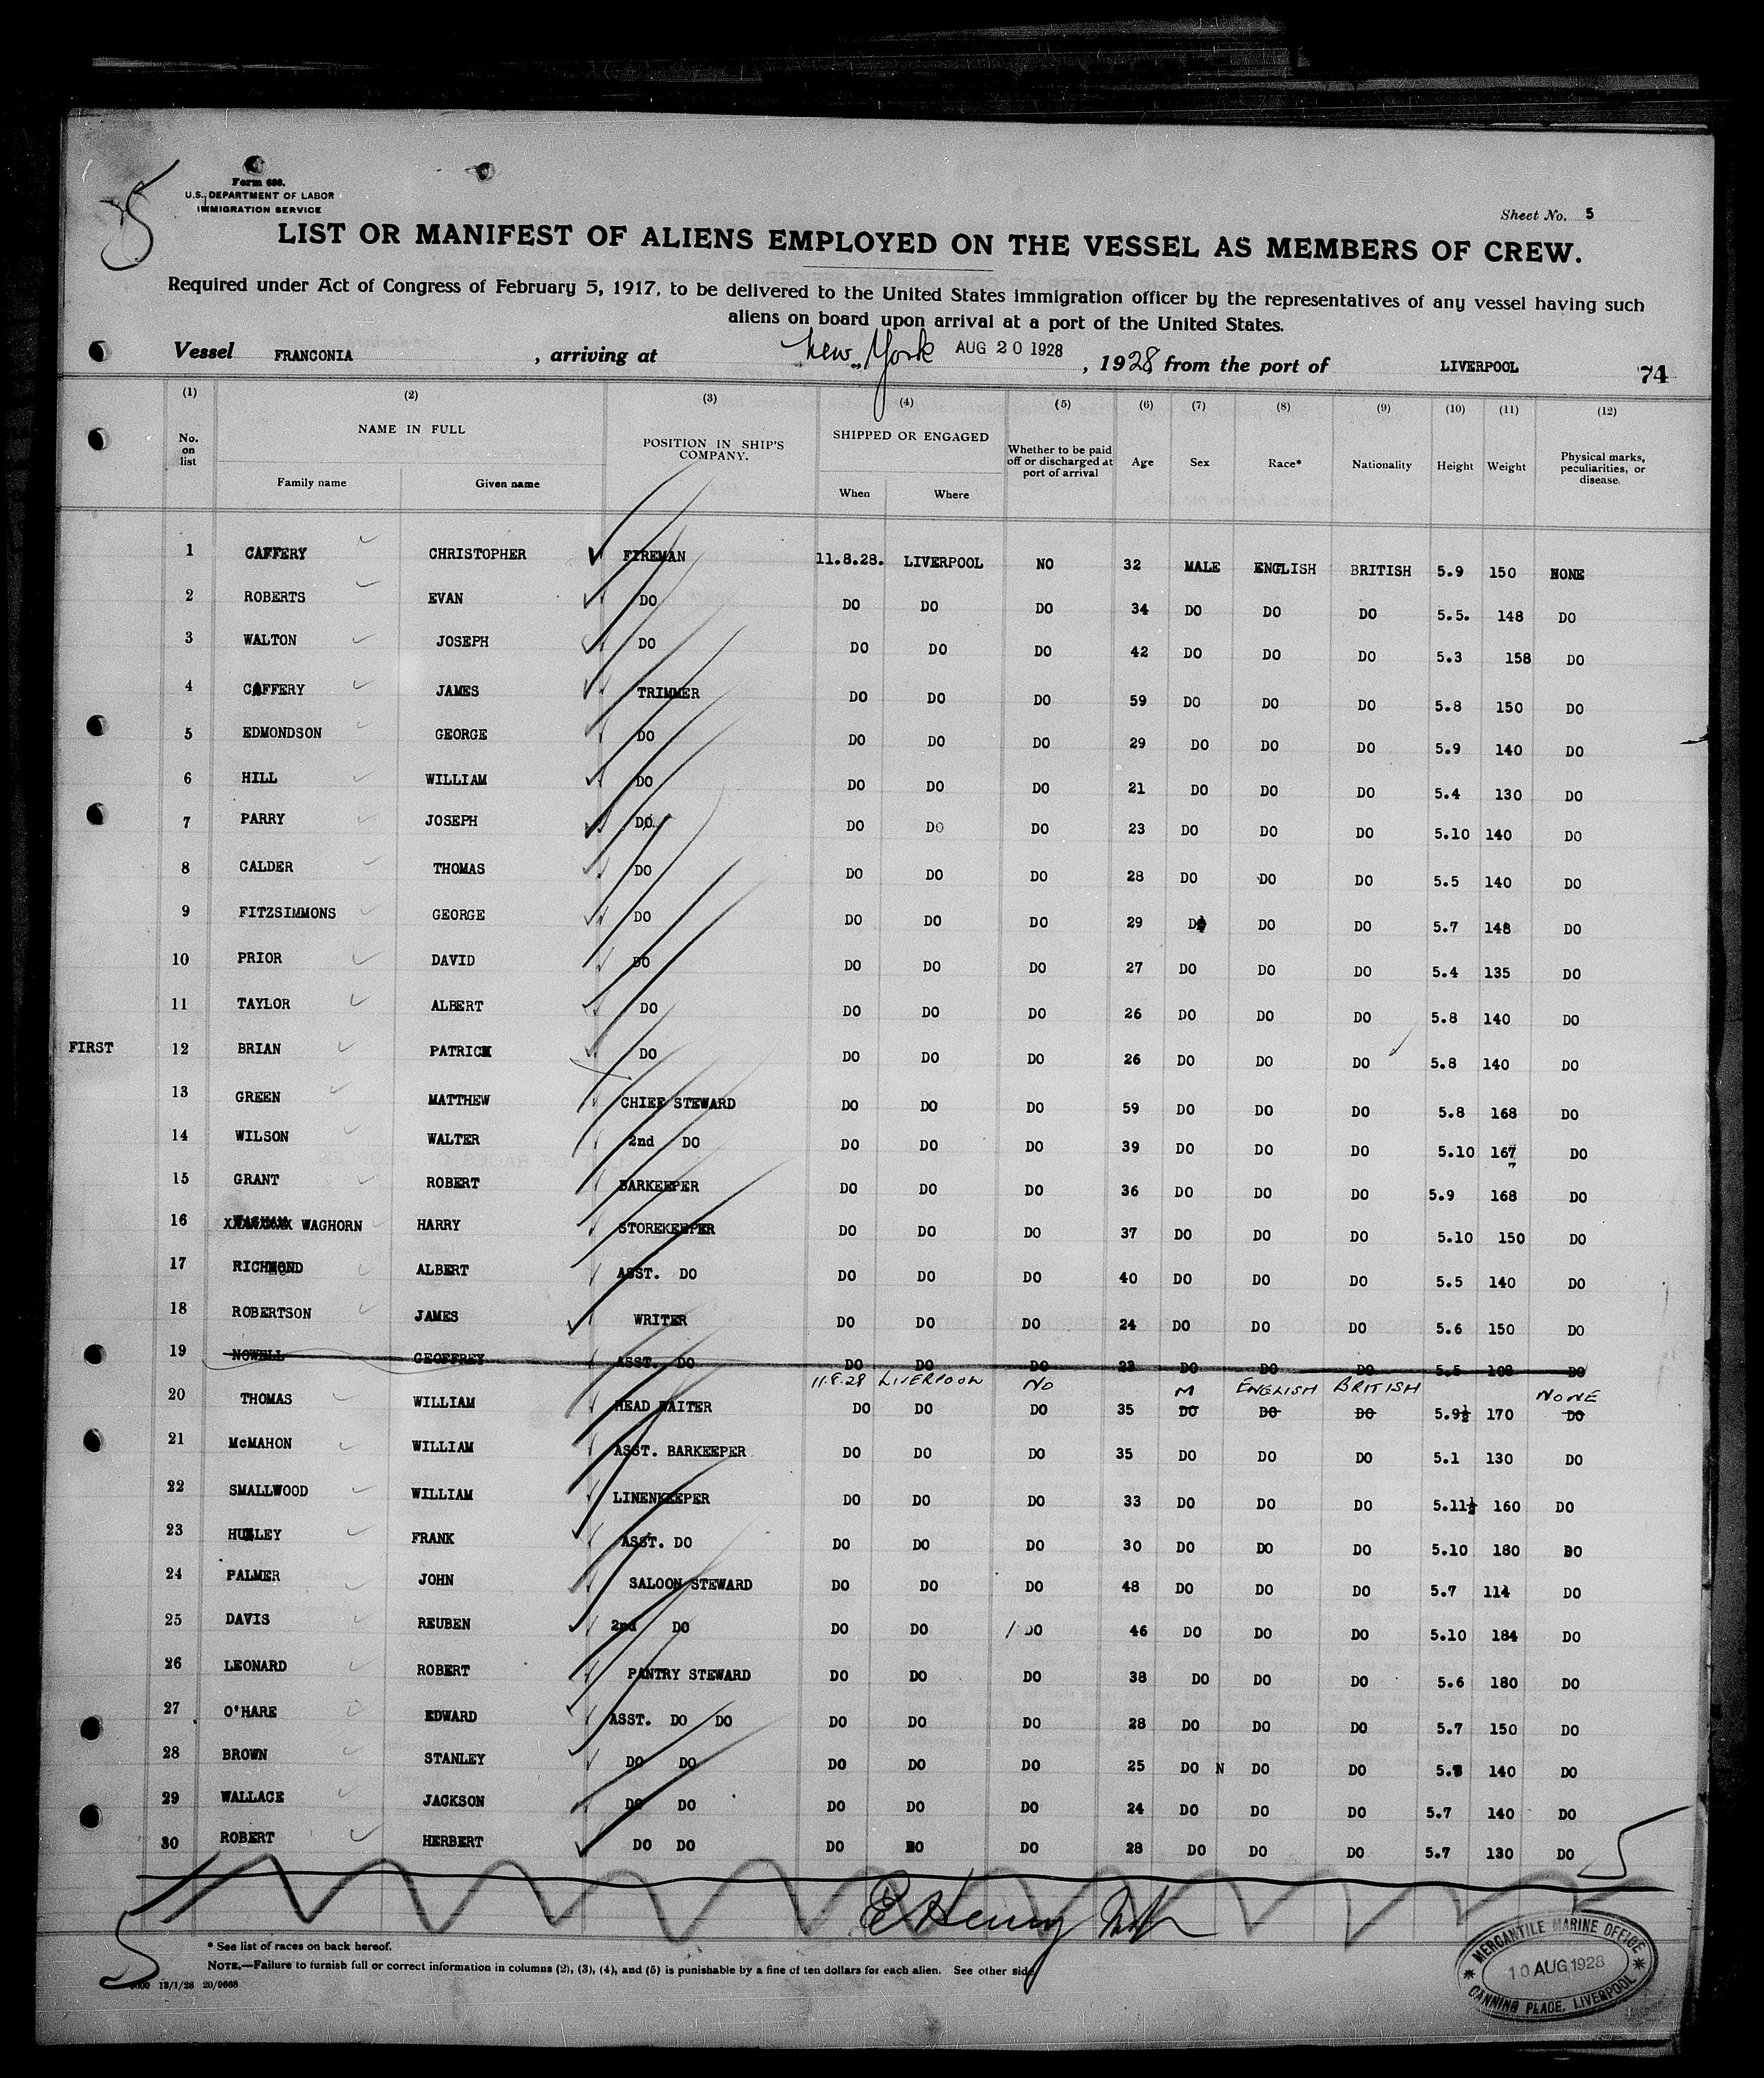 5
Form 680.
U.S. DEPARTMENT OF LABOR
IMMIGRATION SERVICE
Sheet No. 5
LIST OR MANIFEST OF ALIENS EMPLOYED ON THE VESSEL AS MEMBERS OF CREW.
Required under Act of Congress of February 5, 1917, to be delivered to the United States immigration officer by the representatives of any vessel having such
aliens on board upon arrival at a port of the United States.
Vessel FRANCONIA, arriving at New York AUG 20 1928, 1928 from the port of LIVERPOOL 74
(1) (2) (3) (4) (5) (6) (7) (8) (9) (10) (11) (12)
No. on list NAME IN FULL Family name Given name POSITION IN SHIP'S COMPANY. SHIPPED OR ENGAGED When Where Whether to be paid off or discharged at port of arrival Age Sex Race* Nationality Height Weight Physical marks, peculiarities, or disease.
1 CAFFERY CHRISTOPHER FIREMAN 11.8.28. LIVERPOOL NO 32 MALE ENGLISH BRITISH 5.9 150 NONE
2 ROBERTS EVAN DO DO DO DO 34 DO DO DO 5.5. 148 DO
3 WALTON JOSEPH DO DO DO DO 42 DO DO DO 5.3 158 DO
4 CAFFERY JAMES TRIMMER DO DO DO 59 DO DO DO 5.8 150 DO
5 EDMONDSON GEORGE DO DO DO DO 29 DO DO DO 5.9 140 DO
6 HILL WILLIAM DO DO DO DO 21 DO DO DO 5.4 130 DO
7 PARRY JOSEPH DO. DO DO DO 23 DO DO DO 5.10 140 DO
8 CALDER THOMAS DO DO DO DO 28 DO DO DO 5.5 140 DO
9 FITZSIMMONS GEORGE DO DO DO DO 29 DO DO DO 5.7 148 DO
10 PRIOR DAVID DO DO DO DO 27 DO DO DO 5.4 135 DO
11 TAYLOR ALBERT DO DO DO DO 26 DO DO DO 5.8 140 DO
FIRST 12 BRIAN PATRICK DO DO DO DO 26 DO DO DO 5.8 140 DO
13 GREEN MATTHEW CHIEF STEWARD DO DO DO 59 DO DO DO 5.8 168 DO
14 WILSON WALTER 2nd DO DO DO DO 39 DO DO DO 5.10 167 DO
15 GRANT ROBERT BARKEEPER DO DO DO 36 DO DO DO 5.9 168 DO
16 WAGHORN HARRY STOREKEEPER DO DO DO 37 DO DO DO 5.10 150 DO
17 RICHMOND ALBERT ASST. DO DO DO DO 40 DO DO DO 5.5 140 DO
18 ROBERTSON JAMES WRITER DO DO DO 24 DO DO DO 5.6 150 DO
19 NOWELL GEOFFREY ASST. DO DO DO DO 23 DO DO DO 5.5 108 DO
11.8.28 LIVERPOOL NO M ENGLISH BRITISH NONE
20 THOMAS WILLIAM HEAD WAITER DO DO DO 35 DO DO DO 5.9½ 170 DO
21 McMAHON WILLIAM ASST. BARKEEPER DO DO DO 35 DO DO DO 5.1 130 DO
22 SMALLWOOD WILLIAM LINENKEEPER DO DO DO 33 DO DO DO 5.11½ 160 DO
23 FRANK ASST. DO DO DO DO 30 DO DO DO 5.10 180 DO
24 PALMER JOHN SALOON STEWARD DO DO DO 48 DO DO DO 5.7 114 DO
25 DAVIS REUBEN 2nd DO DO DO DO 46 DO DO DO 5.10 184 DO
26 LEONARD ROBERT PANTRY STEWARD DO DO DO 38 DO DO DO 5.6 180 DO
27 O'HARE EDWARD ASST. DO DO DO DO DO 28 DO DO DO 5.7 150 DO
28 BROWN STANLEY DO DO DO DO DO 25 DO N DO DO 140 DO
29 WALLACE JACKSON DO DO DO DO DO 24 DO DO DO 5.7 140 DO
30 ROBERT HERBERT DO DO DO DO DO 28 DO DO DO 5.7 130 DO
5
E Henry
5
* See list of races on back hereof.
NOTE.—Failure to furnish full or correct information in columns (2), (3), (4), and (5) is punishable by a fine of ten dollars for each alien. See other side.
13/1/28 20/9668
MERCANTILE MARINE OFFICE
10 AUG 1928
CANNING PLACE, LIVERPOOL